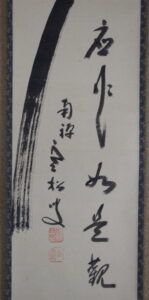 応作如是観
南禅寒松叟